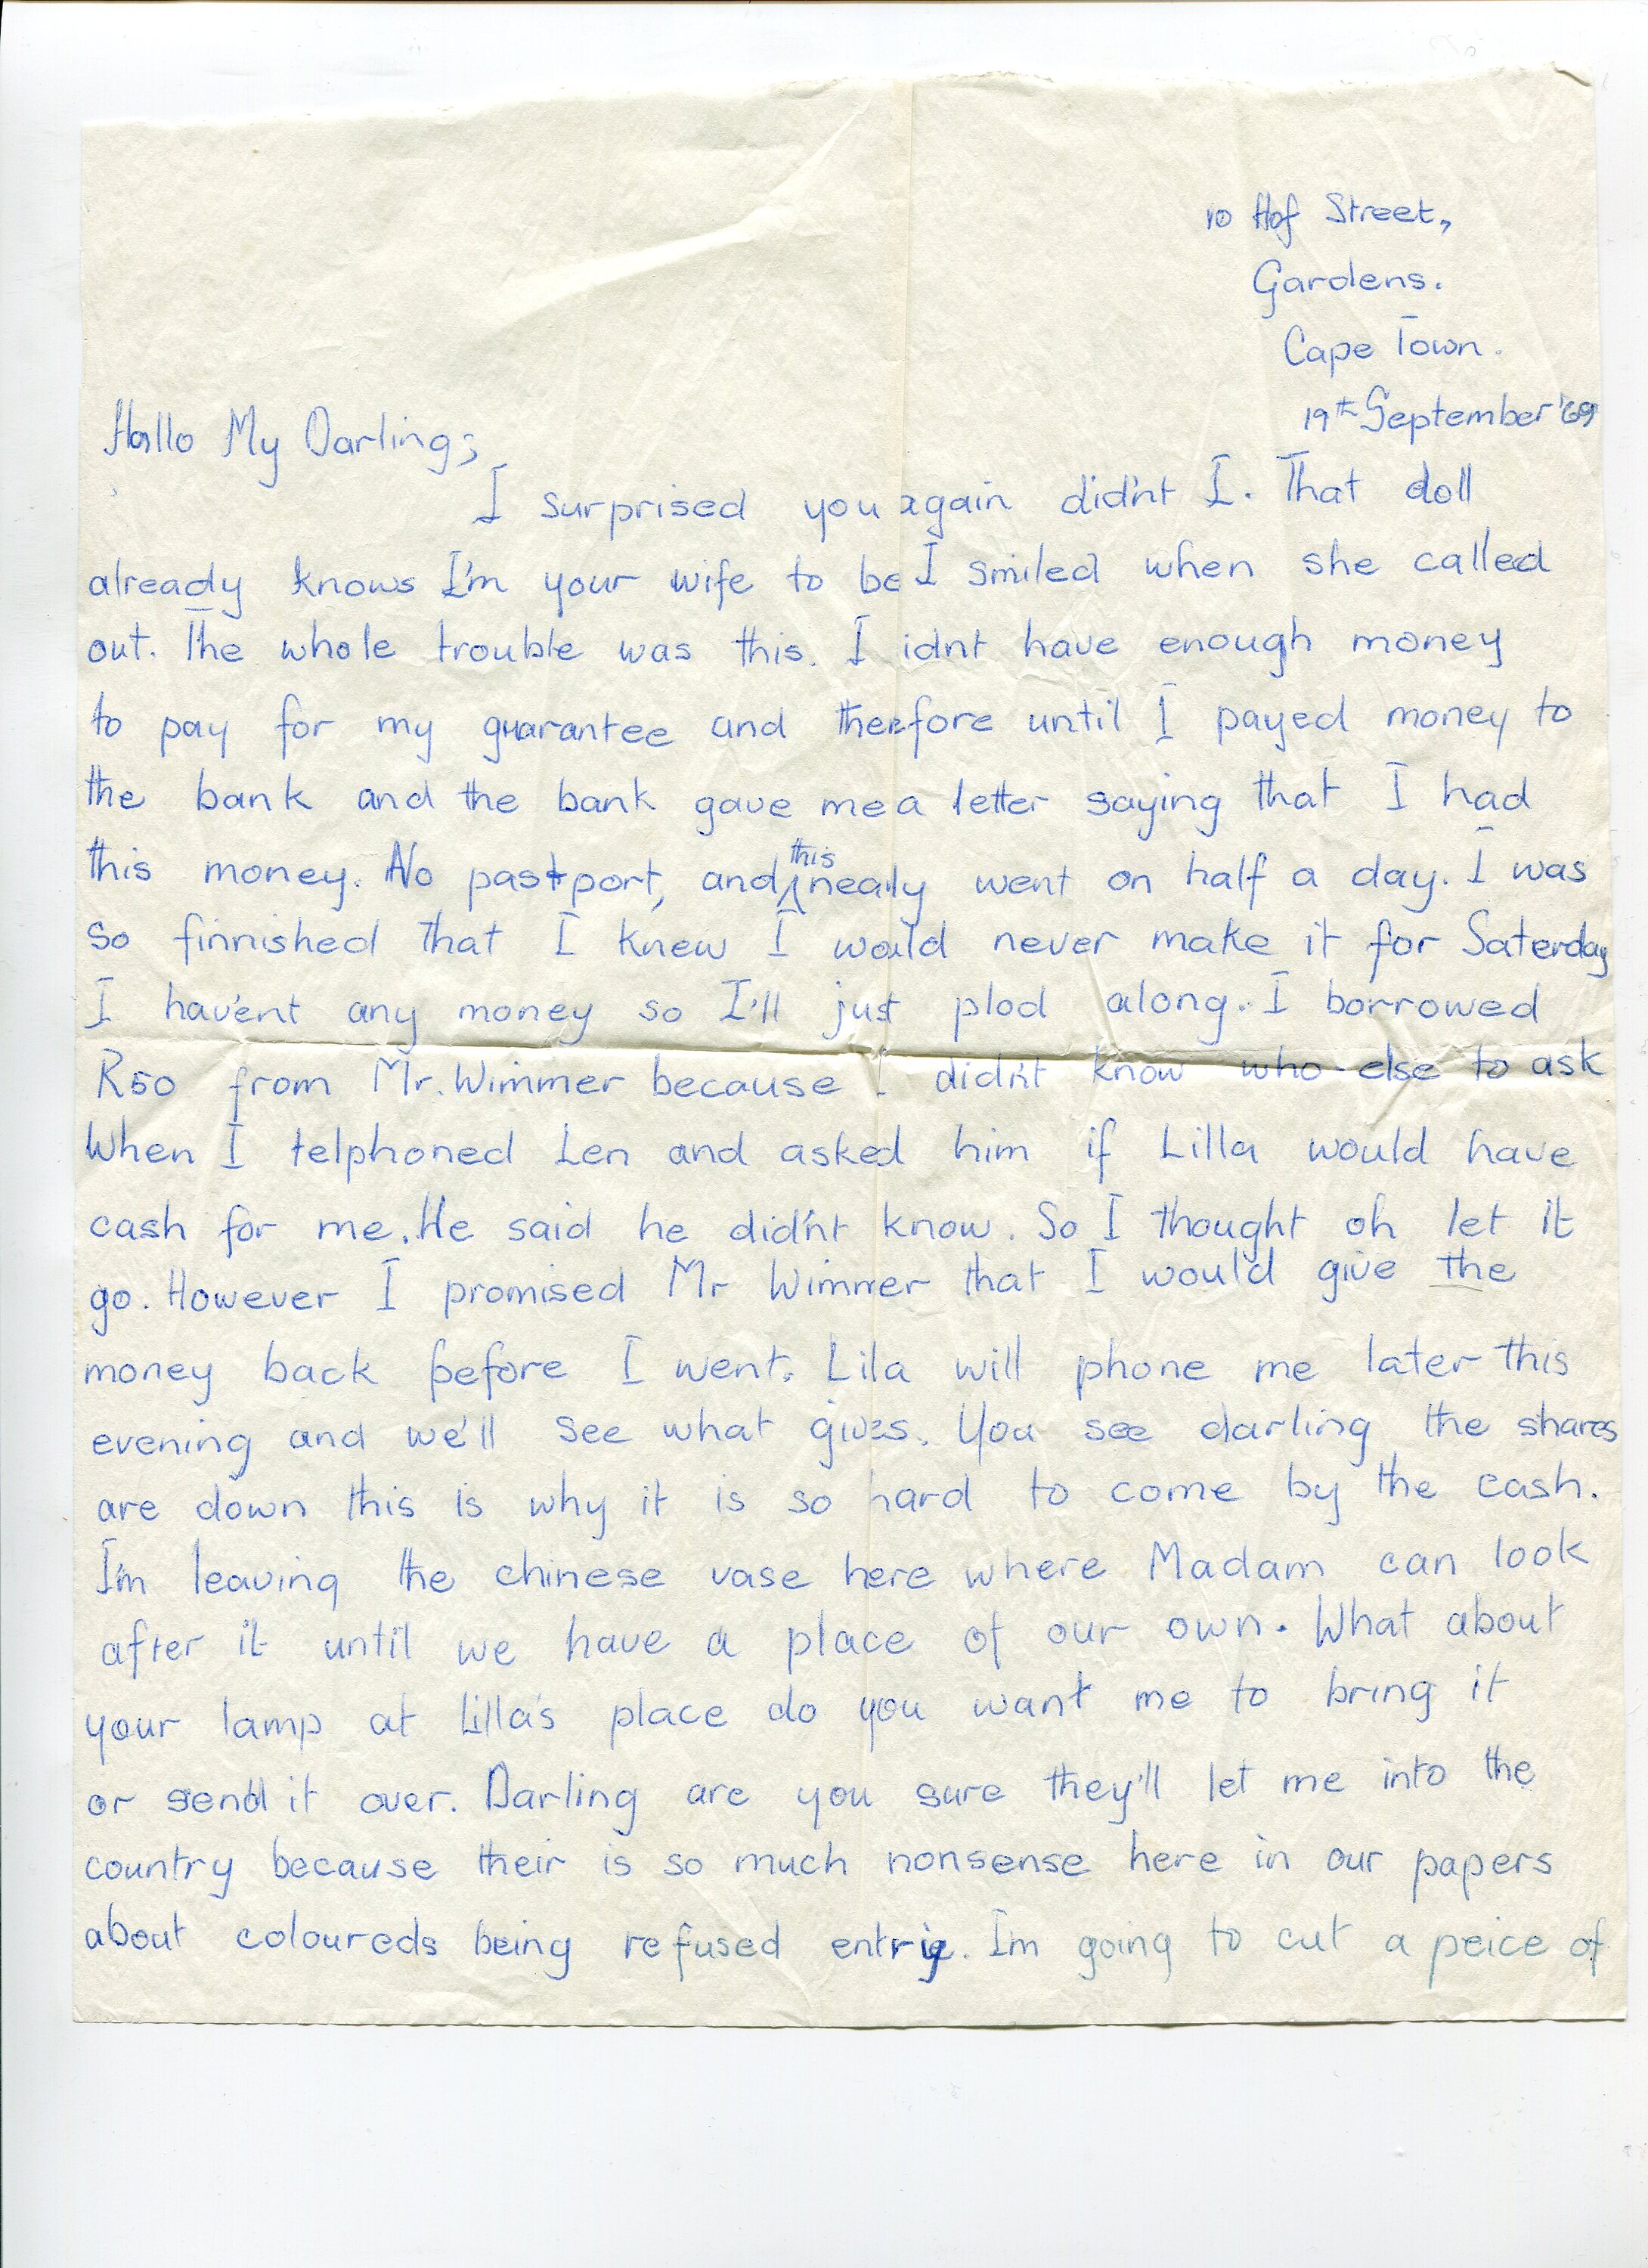 10 Hof Street,
Gardens.
Cape Town.
19th September '69
Hallo My Darling;
I surprised you again did'nt I. That doll
already knows I'm your wife to be I smiled when she called
out. The whole trouble was this. I idnt have enough money
to pay for my guarantee and therfore until I payed money to
the bank and the bank gave me a letter saying that I had
this money. No passport, and this nearly went on half a day. I was
so finnished that I knew I would never make it for Saterday
I hav'ent any money so I'll just plod along. I borrowed
R50 from Mr. Wimmer because I did'nt know who else to ask
When I telphoned Len and asked him if Lilla would have
cash for me. He said he did'nt know. So I thought oh let it
go. However I promised Mr Wimmer that I would give the
money back before I went. Lila will phone me later this
evening and we'll see what gives. You see darling the shares
are down this is why it is so hard to come by the cash.
I'm leaving the chinese vase here where Madam can look
after it until we have a place of our own. What about
your lamp at Lilla's place do you want me to bring it
or send it over. Darling are you sure they'll let me into the
country because their is so much nonsense here in our papers
about coloureds being refused entry. I'm going to cut a peice of